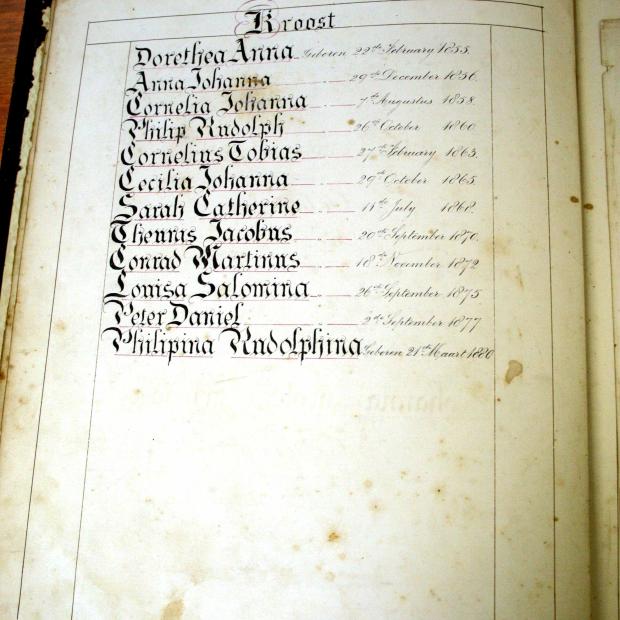 Kroost
Dorothea Anna Geboren 22ste February 1855.
Anna Johanna 29ste December 1856.
Cornelia Johanna 7de Augustus 1858.
Philip Rudolph 26ste October 1860.
Cornelius Tobias 27ste February 1863.
Cecilia Johanna 29ste October 1865.
Sarah Catherine 11de July 1868.
Theunis Jacobus 20ste September 1870.
Conrad Martinus 18de November 1872
Louisa Salomina 26ste September 1875
Peter Daniel 2de September 1877
Philipina Rudolphina Geboren 21ste Maart 1880